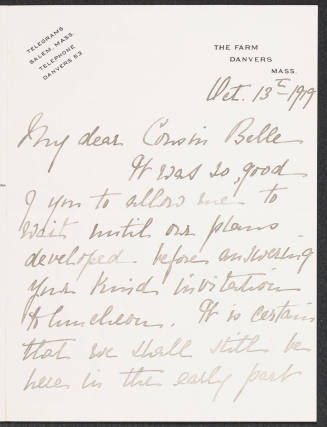 TELEGRAMS
SALEM, MASS.
TELEPHONE
DANVERS 53
THE FARM
DANVERS
MASS.
Oct. 13th 1919
My dear Cousin Belle
It was so good
of you to allow me to
wait until our plans
developed before answering
your kind invitation
to luncheon. It is certain
that we shall still be
here in the early part